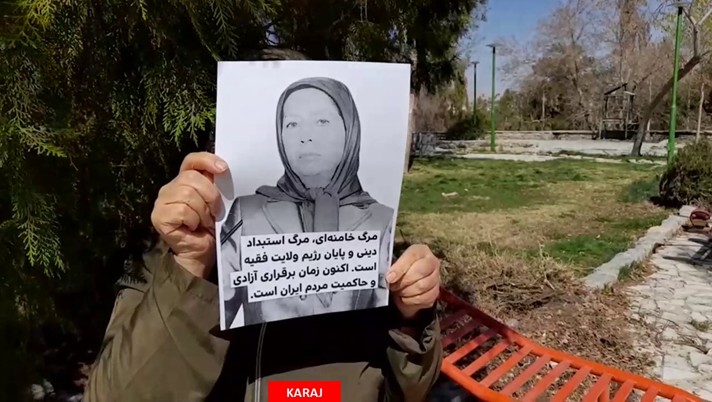 مرگ خامنه‌ای، مرگ استبداد
دینی و پایان رژیم ولایت فقیه
است. اکنون زمان برقراری آزادی
و حاکمیت مردم ایران است.
KARAJ